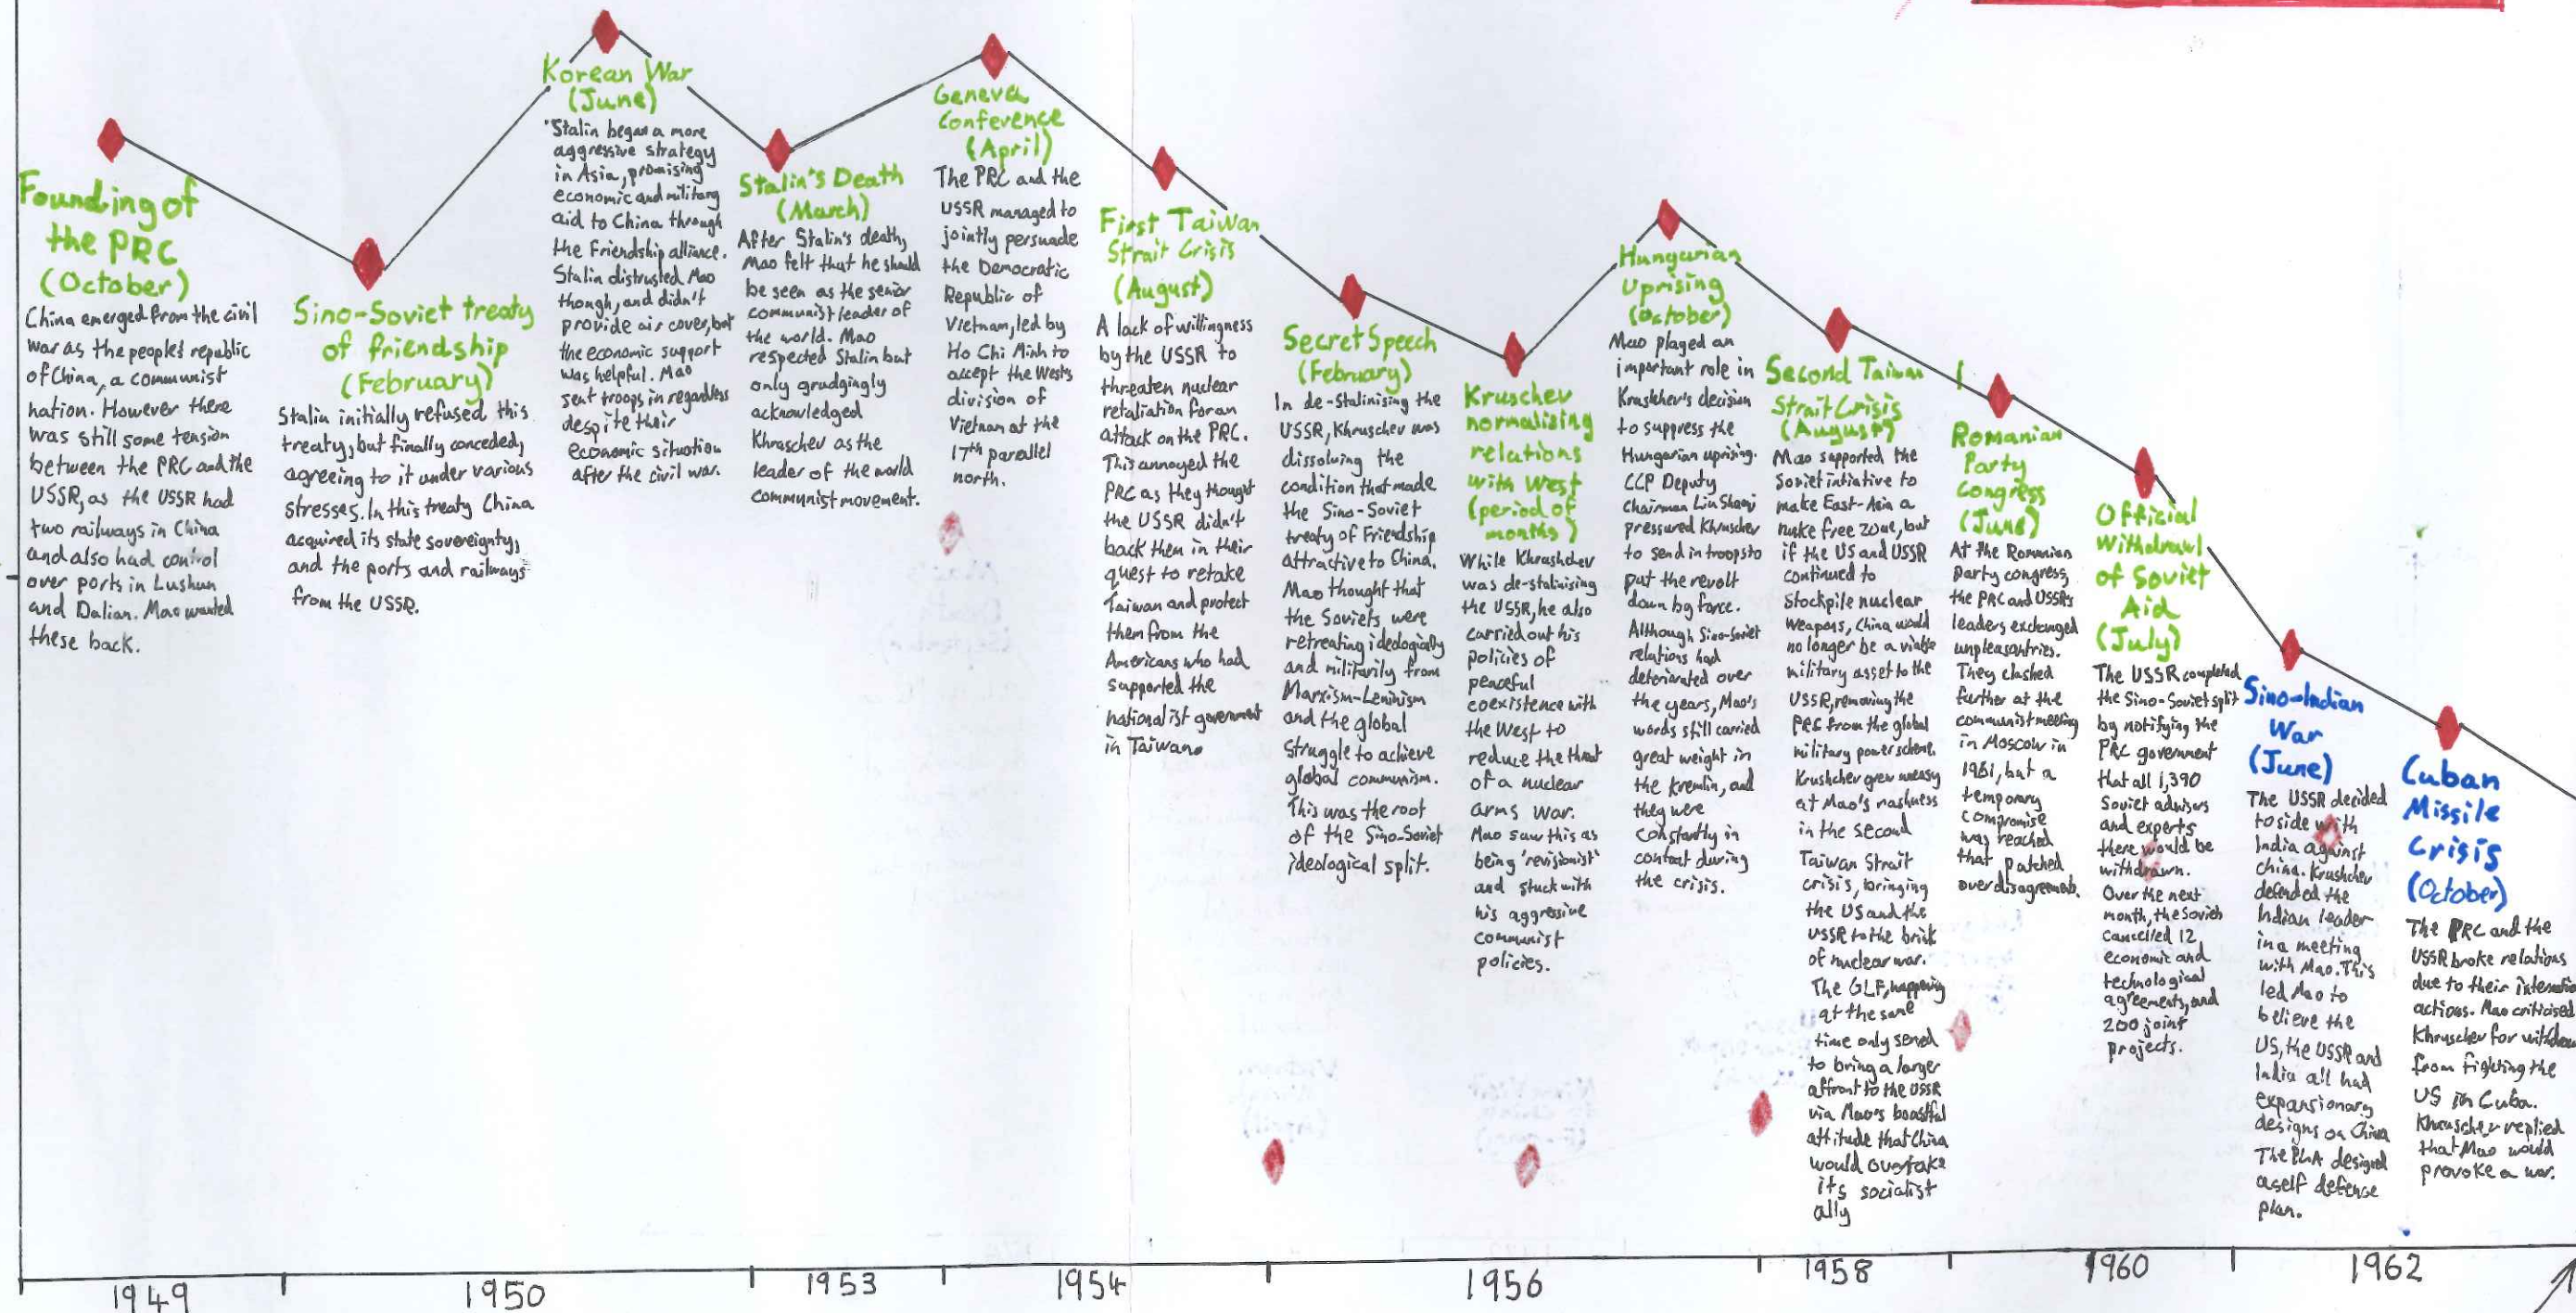 Founding of
the PRC
(October)
China emerged from the civil
war as the people's republic
of China, a communist
nation. However there
was still some tension
between the PRC and the
USSR, as the USSR had
two railways in China
and also had control
over ports in Lushun
and Dalian. Mao wanted
these back.
Sino-Soviet treaty
of friendship
(February)
Stalin initially refused this
treaty, but finally conceded,
agreeing to it under various
stresses. In this treaty China
acquired its state sovereignty,
and the ports and railways
from the USSR.
Korean War
(June)
Stalin began a more
aggressive strategy
in Asia, promising
economic and military
aid to China through
the Friendship alliance.
Stalin distrusted Mao
though, and didn't
provide air cover, but
the economic support
was helpful. Mao
sent troops in regardless
despite their
economic situation
after the civil war.
Stalin's Death
(March)
After Stalin's death,
Mao felt that he should
be seen as the senior
communist leader of
the world. Mao
respected Stalin but
only grudgingly
acknowledged
Khruschev as the
leader of the world
communist movement.
Geneva
Conference
(April)
The PRC and the
USSR managed to
jointly persuade
the Democratic
Republic of
Vietnam, led by
Ho Chi Minh to
accept the West's
division of
Vietnam at the
17th parallel
north.
First Taiwan
Strait Crisis
(August)
A lack of willingness
by the USSR to
threaten nuclear
retaliation for an
attack on the PRC.
This annoyed the
PRC as they thought
the USSR didn't
back them in their
quest to retake
Taiwan and protect
them from the
Americans who had
supported the
nationalist government
in Taiwan.
Secret Speech
(February)
In de-Stalinising the
USSR, Khruschev was
dissolving the
condition that made
the Sino-Soviet
treaty of Friendship
attractive to China.
Mao thought that
the Soviets were
retreating ideologically
and militarily from
Marxism-Leninism
and the global
struggle to achieve
global communism.
This was the root
of the Sino-Soviet
ideological split.
Kruschev
normalising
relations
with West
(period of
months)
While Khrushchev
was de-stalinising
the USSR, he also
carried out his
policies of
peaceful
coexistence with
the West to
reduce the threat
of a nuclear
arms war.
Mao saw this as
being 'revisionist'
and stuck with
his aggressive
communist
policies.
Hungarian
Uprising
(October)
Mao played an
important role in
Krushchev's decision
to suppress the
Hungarian uprising.
CCP Deputy
Chairman Liu Shaoqi
pressured Khruschev
to send in troops to
put the revolt
down by force.
Although Sino-Soviet
relations had
deteriorated over
the years, Mao's
words still carried
great weight in
the Kremlin, and
they were
constantly in
contact during
the crisis.
Second Taiwan
Strait Crisis
(August)
Mao supported the
Soviet intiative to
make East-Asia a
nuke free zone, but
if the US and USSR
continued to
stockpile nuclear
weapons, China would
no longer be a viable
military asset to the
USSR, removing the
PRC from the global
military power scheme.
Krushchev grew uneasy
at Mao's rashness
in the second
Taiwan Strait
crisis, bringing
the US and the
USSR to the brink
of nuclear war.
The GLF, happening
at the same
time only served
to bring a larger
affront to the USSR
via Mao's boastful
attitude that China
would overtake
its socialist
ally
Romanian
Party
Congress
(June)
At the Romanian
Party congress,
the PRC and USSR's
leaders exchanged
unpleasantries.
They clashed
further at the
communist meeting
in Moscow in
1961, but a
temporary
compromise
was reached
that patched
over disagreements.
Official
Withdrawl
of Soviet
Aid
(July)
The USSR completed
the Sino-Soviet split
by notifying the
PRC government
that all 1,390
Soviet advisors
and experts
there would be
withdrawn.
Over the next
month, the soviets
cancelled 12
economic and
technological
agreements, and
200 joint
projects.
Sino-Indian
War
(June)
The USSR decided
to side with
India against
China. Krushchev
defended the
Indian leader
in a meeting
with Mao. This
led Mao to
believe the
US, the USSR and
India all had
expansionary
designs on China
The PLA designed
a self defence
plan.
Cuban
Missile
Crisis
(October)
The PRC and the
USSR broke relations
due to their
actions. Mao criticised
Khruschev for
from fighting the
US in Cuba.
Khruschev replied
that Mao would
provoke a war.
1949
1950
1953
1954
1956
1958
1960
1962